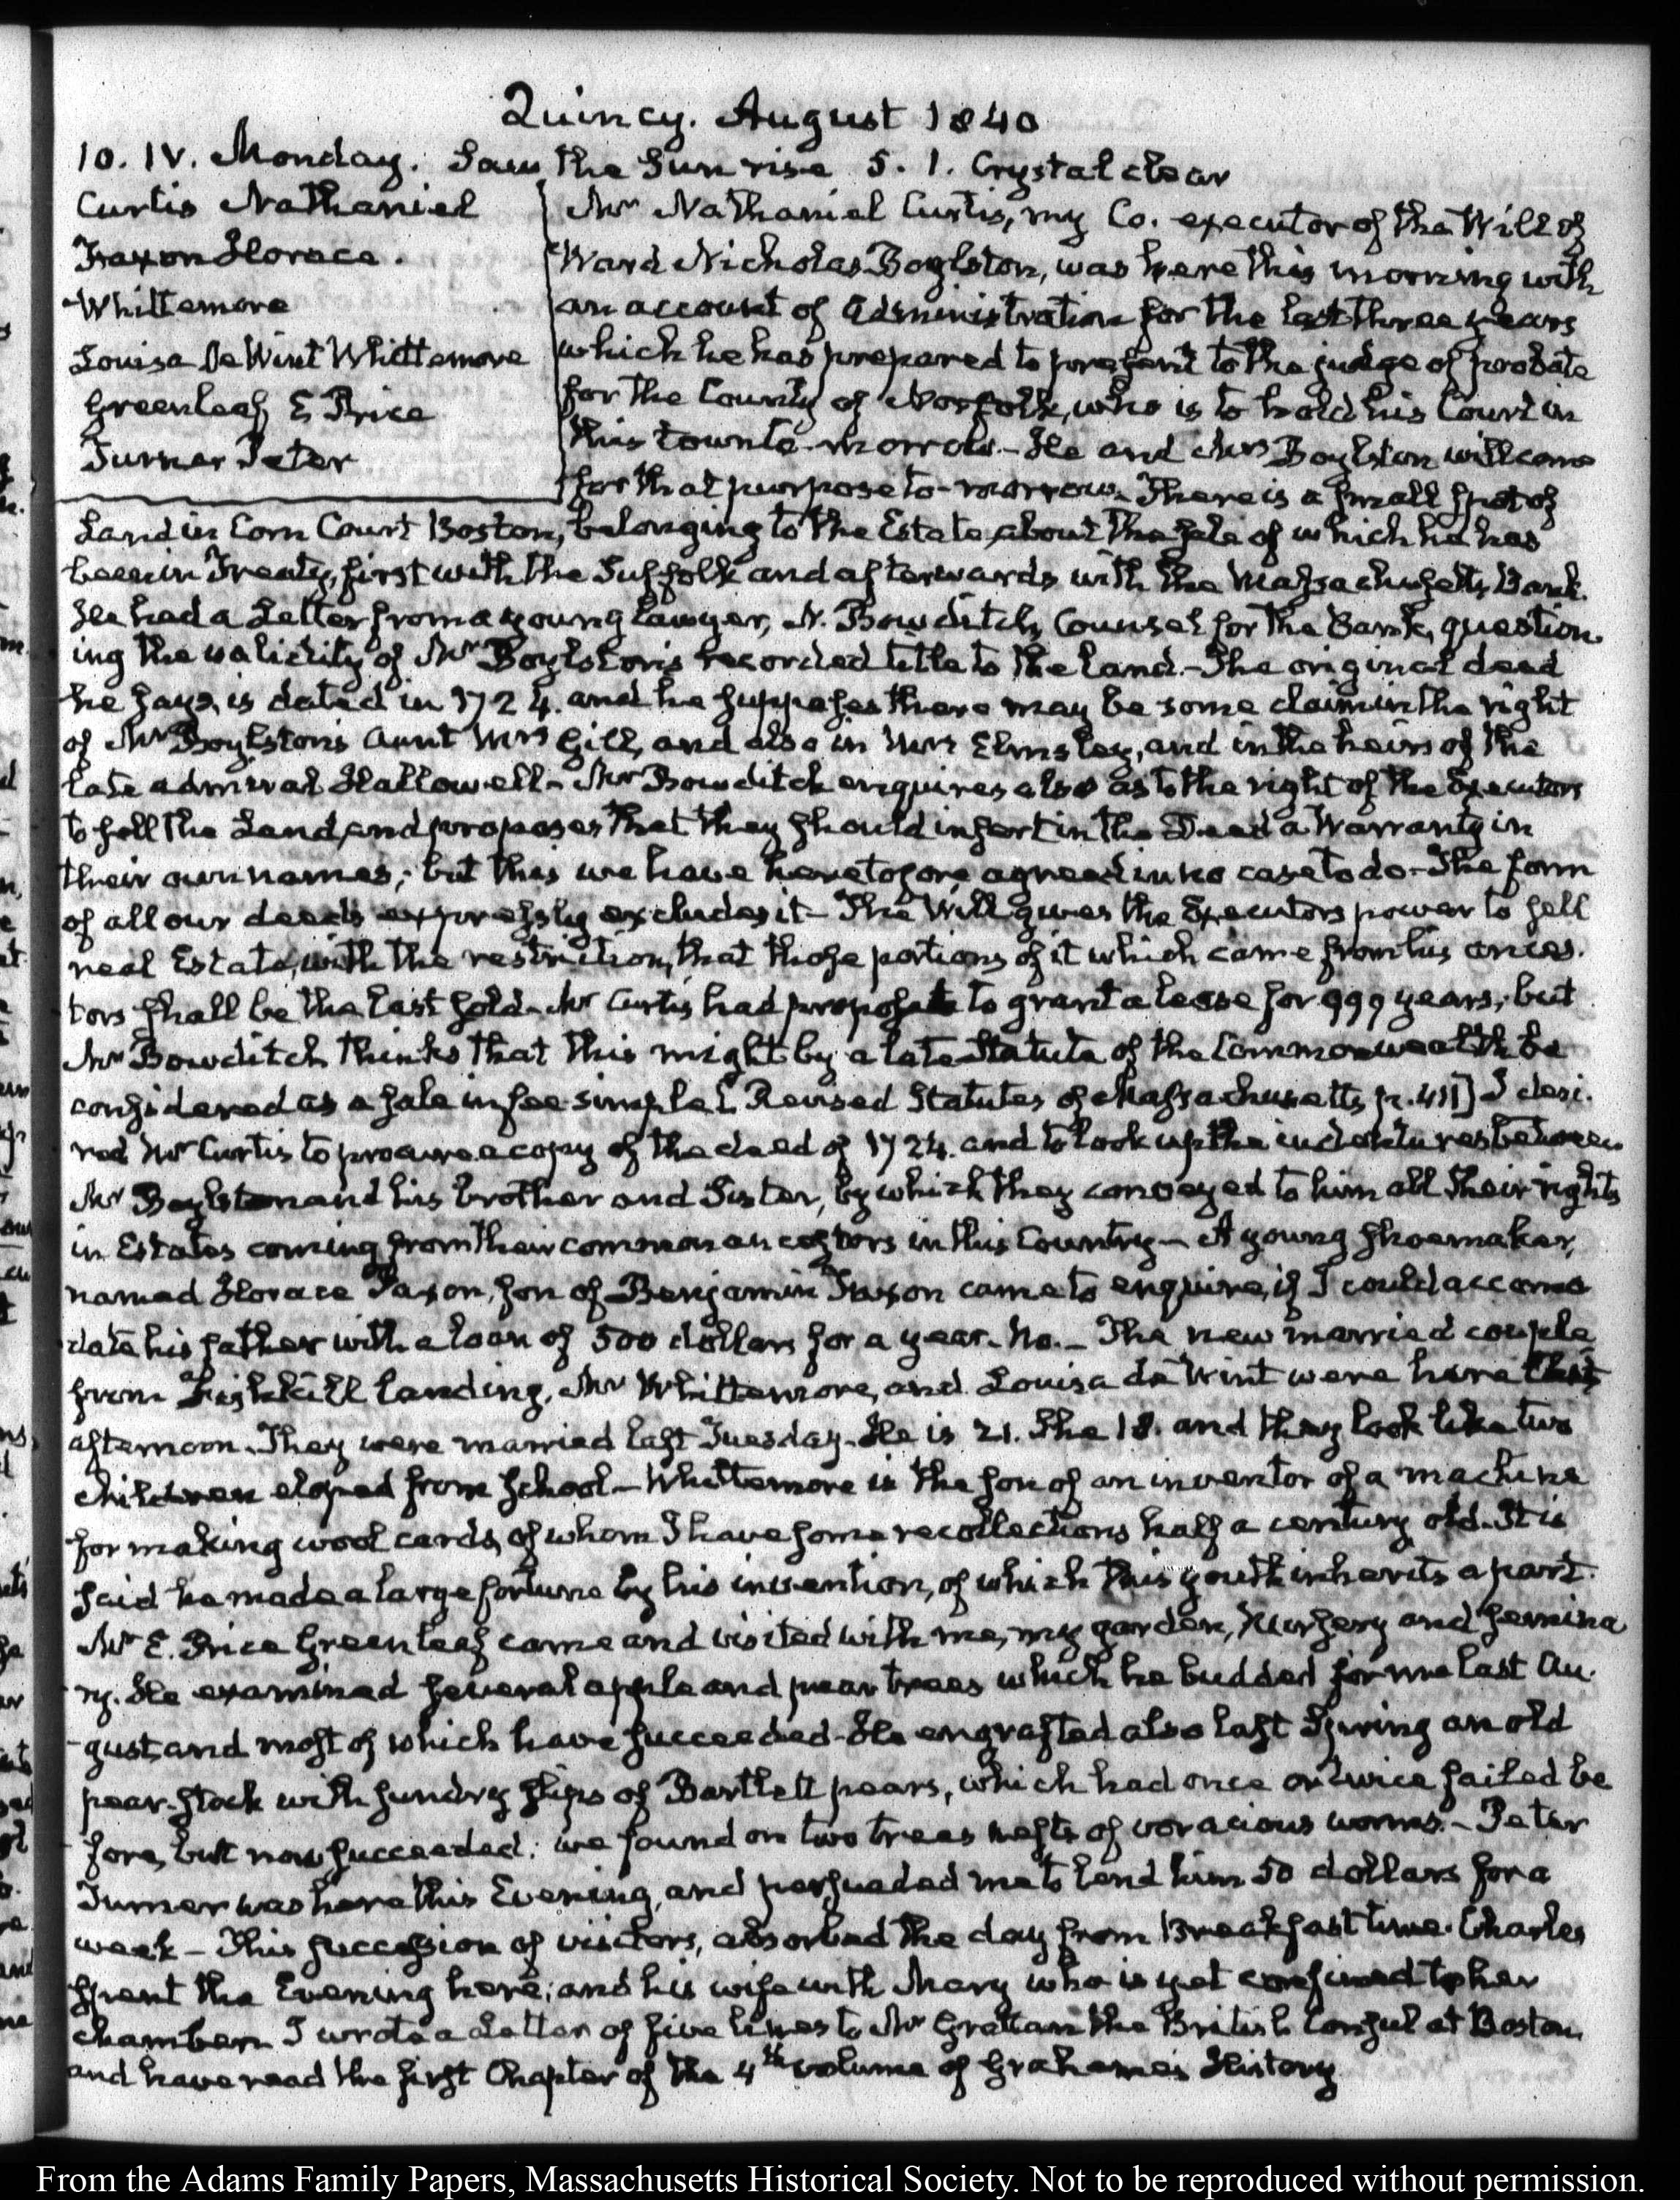 Quincy. August 1840
10. IV. Monday. Saw the Sun rise 5. 1. Crystal clear
Curtis Nathaniel
Faxon Horace.
Whittemore
Louisa De Wint Whittemore
Greenleaf E Price
Turner Peter
Mr Nathaniel Curtis, my Co. executor of the Will of
Ward Nicholas Boylston, was here this morning with
an account of administration for the last three years
which he has prepared to present to the judge of probate
for the County of Norfolk, who is to hold his Court in
this town to-morrow.- He and Mrs Boylston will come
for that purpose to-morrow. There is a small spot of
Land in Corn Court Boston, belonging to the Estate, about the sale of which he has
been in Treaty, first with the Suffolk and afterwards with the Massachusetts Bank.
He had a Letter from a young lawyer, N. Bowditch, Counsel for the Bank, question-
ing the validity of Mr Boylston's recorded title to the land.- The original deed
he says, is dated in 1724. and he supposes there may be some claim in the right
of Mr Boylston's aunt Mrs Gill, and also in Mrs Elmsley, and in the heirs of the
late admiral Hallowell- Mr Bowditch enquires also as to the right of the Executors
to sell the Land, and proposes that they should insert in the Deed a Warranty in
their own names; but this we have heretofore agreed in no case to do- The form
of all our deeds expressly excludes it- The Will gives the Executors power to sell
real Estate, with the restriction, that those portions of it which came from his ances-
tors shall be the last sold- Mr Curtis had proposed to grant a lease for 999 years; but
Mr Bowditch thinks that this might by a late Statute of the Commonwealth be
considered as a sale in fee simple [Revised Statutes of Massachusetts p. 411] I desi-
red Mr Curtis to procure a copy of the deed of 1724. and to look up the indentures between
Mr Boylston and his brother and Sister, by which they conveyed to him all their rights
in Estates coming from their common ancestors in this Country- A young shoemaker,
named Horace Faxon, son of Benjamin Faxon came to enquire, if I could accomo
date his father with a loan of 500 dollars for a year. No.- The new married couple
from Fishkill landing, Mr Whittemore, and Louisa de Wint were here this
afternoon. They were married last Tuesday. He is 21. She 18. and they look like two
children eloped from school- Whittemore is the son of an inventor of a machine
for making wool cards, of whom I have some recollections half a century old. It is
said he made a large fortune by his invention, of which this youth inherits a part.
Mr E. Price Greenleaf came and visited with me, my garden, Nursery and semina
ry. He examined several apple and pear trees which he budded for me last Au-
gust, and most of which have succeeded- He engrafted also last Spring an old
pear-stock with sundry slips of Bartlett pears, which had once or twice failed be
fore, but now succeeded. we found on two trees nests of voracious worms.- Peter
Turner was here this Evening, and persuaded me to lend him 50 dollars for a
week- This succession of visitors, absorbed the day from Breakfast time. Charles
spent the Evening here, and his wife with Mary who is yet confined to her
chamber. I wrote a Letter of five lines to Mr Grattan the British Consul at Boston,
and have read the first Chapter of the 4th volume of Grahame's History
From the Adams Family Papers, Massachusetts Historical Society. Not to be reproduced without permission.